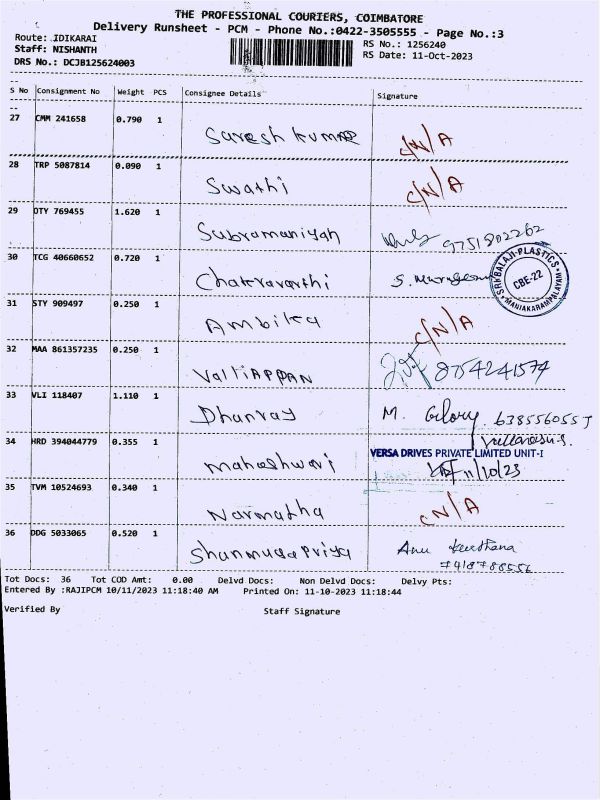 THE PROFESSIONAL COURIERS, COIMBATORE
Delivery Runsheet - PCM - Phone No.:0422-3505555 - Page No.:3
Route: IDIKARAI
RS No.: 1256240
Staff: NISHANTH
RS Date: 11-Oct-2023
DRS No.: DCJB125624003
S No Consignment No Weight PCS Consignee Details Signature
27 CMM 241658 0.790 1 Suresh kumar C/N/A
28 TRP 5087814 0.090 1 Swathi C/N/A
29 OTY 769455 1.620 1 Subramaniyan 9751802262
30 TCG 40660652 0.720 1 Chakravarthi S. Murugesan
SRI BALAJI PLASTICS
CBE-22
MANIAKARAMPALAYAM
31 STY 909497 0.250 1 Ambika C/N/A
32 MAA 861357235 0.250 1 VALLIAPPAN 8754241574
33 VLI 118407 1.110 1 Dhanraj M. Glory. 638556055
34 HRD 394044779 0.355 1 maheshwari
VERSA DRIVES PRIVATE LIMITED UNIT-I
11/10/23
35 TVM 10524693 0.340 1 Narmatha C/N/A
36 DDG 5033065 0.520 1 Shanmugapriya Anu
7418788556
Tot Docs: 36 Tot COD Amt: 0.00 Delvd Docs: Non Delvd Docs: Delvy Pts:
Entered By :RAJIPCM 10/11/2023 11:18:40 AM Printed On: 11-10-2023 11:18:44
Verified By Staff Signature